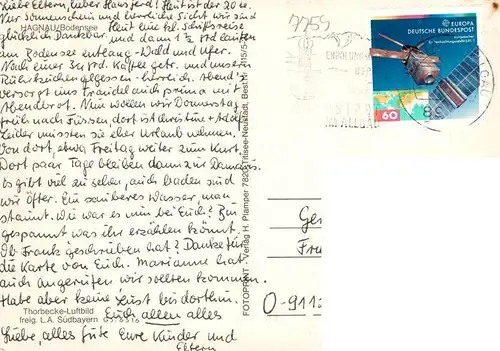 Liebe Eltern, lieber Hansjörg! Heut ist der 20.
HAGNAU/Bodensee
Nur Sonnenschein und herrliche Sicht wir sind
glücklich Dankbar und dann 1 1/2 Std laufen
am Bodensee entlang - Wald und Ufer.
Nach einer Std. Kaffee getr. und unsern
Rührkuchen gegessen - herrlich. Abend's
versorgt uns Traudel auch prima mit
Abendbrot. Nun wollen wir Donnerstag
früh nach Füssen, dort ist Christine + Adolf
Leider mussten sie eher Urlaub nehmen.
Von dort, etwa Freitag weiter zum Kurt.
Dort paar Tage bleiben dann zur
Es gibt viel zu sehen, auch baden sind
wir öfter. Ein sauberes Wasser, man
staunt. Wie war es nun bei Euch? Bin
gespannt was ihr erzählen könnt.
Ob Frank geschrieben hat? Danke für
die Karte von Euch. Marianne hat
auch angerufen wir sollten kommen.
Habe aber keine Lust bis dorthin.
Thorbecke-Luftbild
freig. L.A. Südbayern
Euch allen alles
Liebe, alles Gute Eure Kinder und
Eltern
FOTOPRINT - Verlag H. Plamper 7820 Titisee-Neustadt, Best.Nr.
7759
EUROPA
DEUTSCHE BUNDESPOST
60
IM ALLGÄU
Fra
O-911